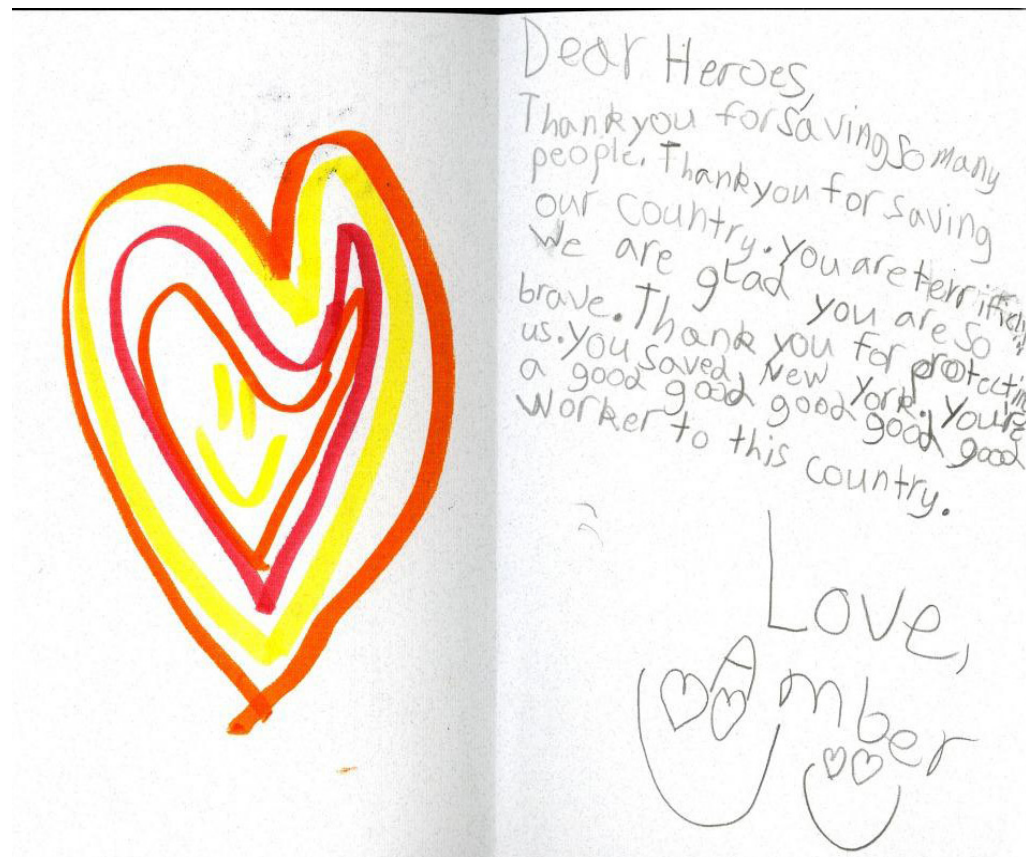 Dear Heroes,
Thank you for saving so many
people. Thank you for saving
our country. You are terrific
We are glad you are so
brave. Thank you for protecting
us. You saved New York. Youre
a good good good good good
worker to this country.
Love,
Amber